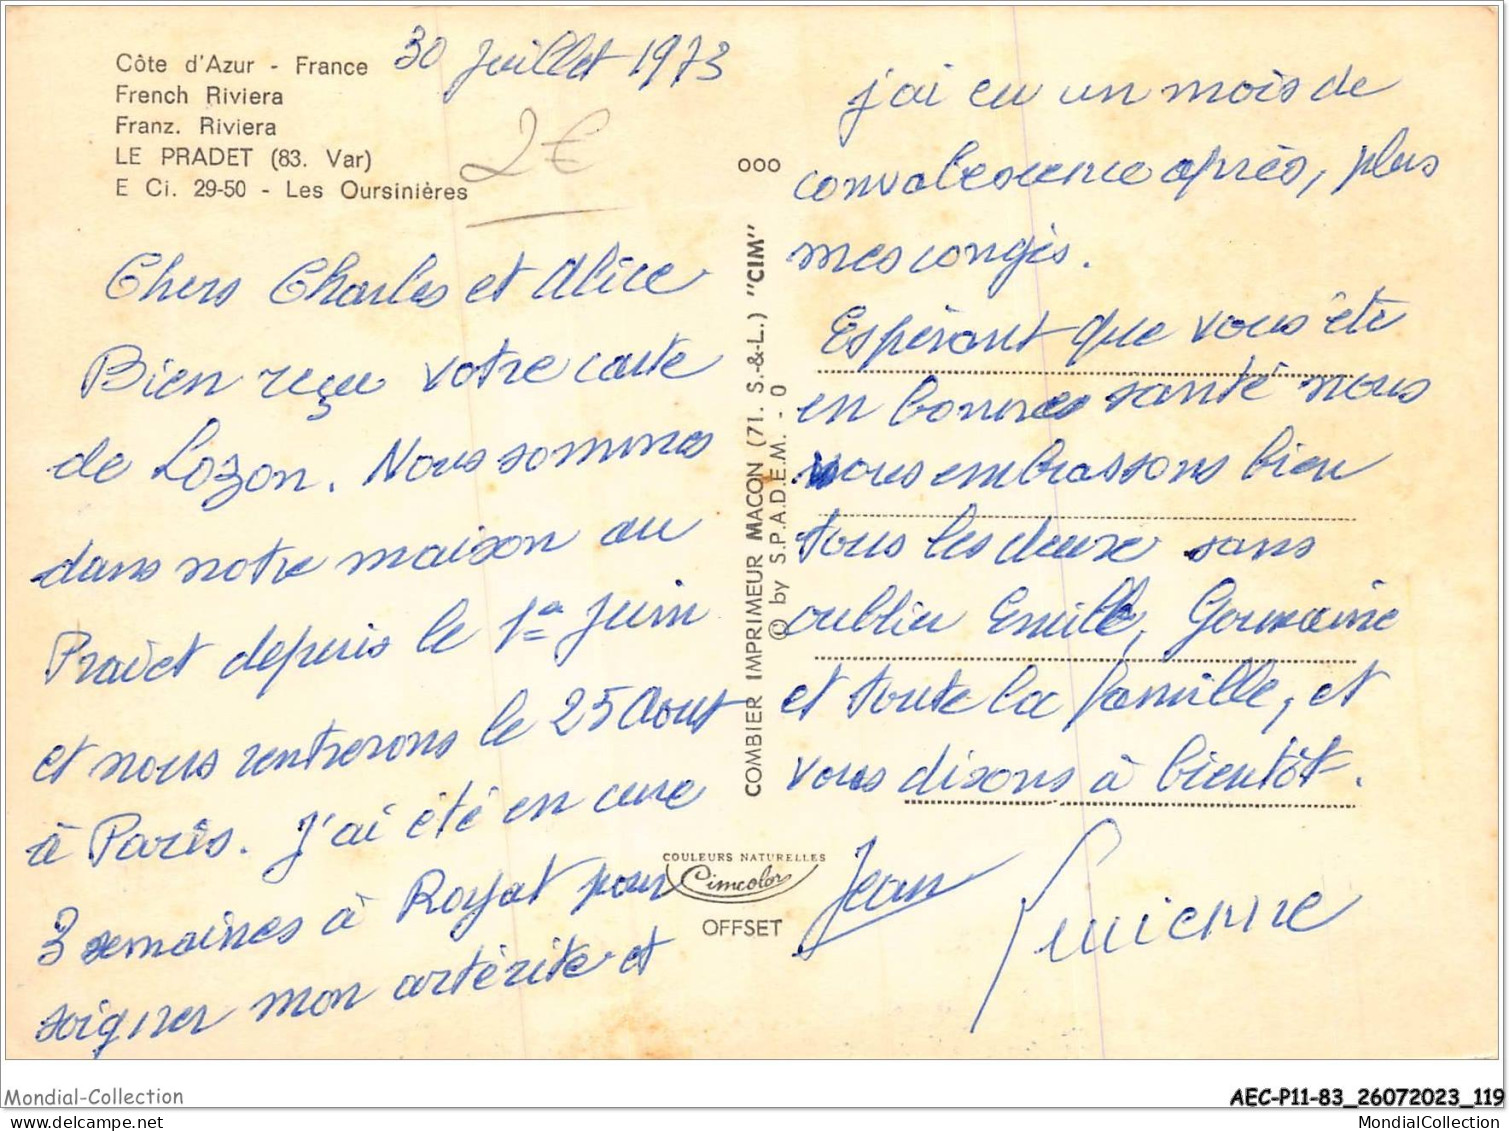 Côte d'Azur - France
French Riviera
Franz. Riviera
LE PRADET (83. Var)
E Ci. 29-50 - Les Oursinières
30 Juillet 1973
2€
Chers Charles et Alice
Bien reçu votre carte
de Lozon. Nous sommes
dans notre maison au
Pradet depuis le 1er Juin
et nous rentrerons le 25 Aout
à Paris. J'ai été en cure
3 semaines à Royat pour
soigner mon artérite et
COMBIER IMPRIMEUR MACON (71. S.-&-L.) "CIM"
© by S.P.A.D.E.M. - 0
OOO
COULEURS NATURELLES
Cimcolor
OFFSET
j'ai eu un mois de
convalescence après, plus
mes congés.
Espérant que vous êtes
en bonnes santé nous
vous embrassons bien
tous les deux sans
oublier Emille, Germaine
et toute la famille, et
vous disons à bientôt.
Jean
Lucienne
Mondial-Collection
AEC-P11-83_26072023_119
MondialCollection
www.delcampe.net
MondialCollection